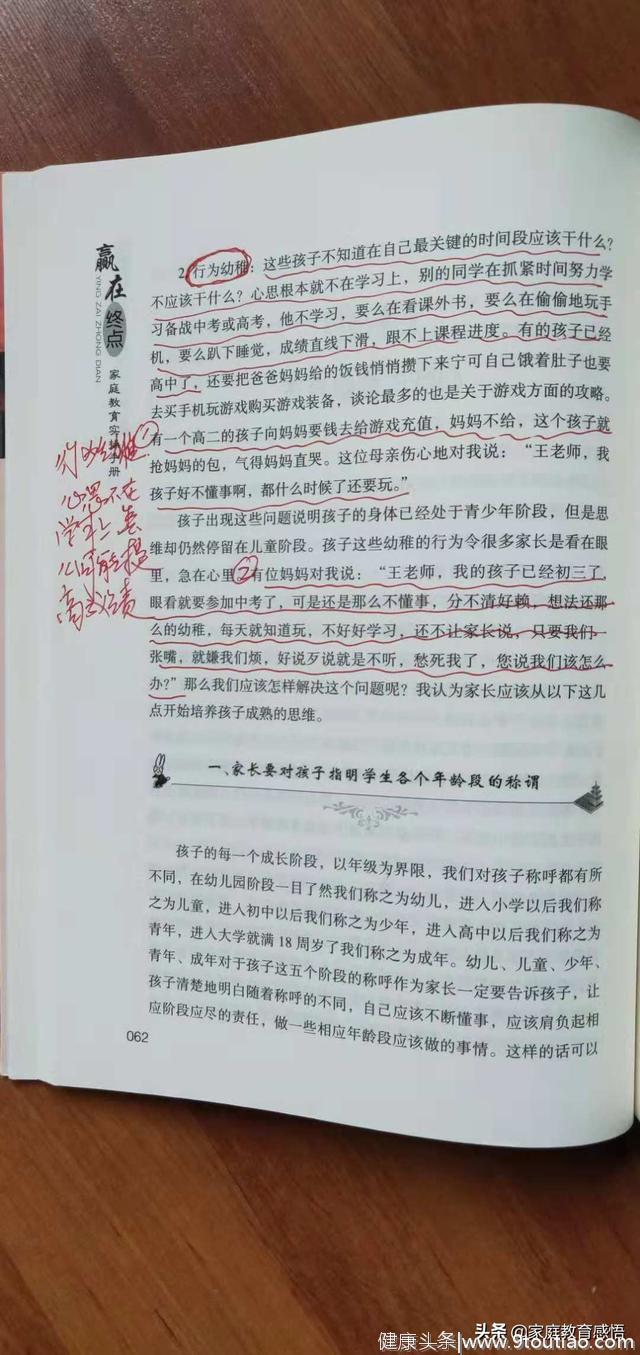 赢在终点
YING ZAI ZHONG DIAN
家庭教育实操手册
2.行为幼稚：这些孩子不知道在自己最关键的时间段应该干什么？
不应该干什么？心思根本就不在学习上，别的同学在抓紧时间努力学
习备战中考或高考，他不学习，要么在看课外书，要么在偷偷地玩手
机，要么趴下睡觉，成绩直线下滑，跟不上课程进度。有的孩子已经
高中了，还要把爸爸妈妈给的饭钱悄悄攒下来宁可自己饿着肚子也要
去买手机玩游戏购买游戏装备，谈论最多的也是关于游戏方面的攻略。
有一个高二的孩子向妈妈要钱去给游戏充值，妈妈不给，这个孩子就
抢妈妈的包，气得妈妈直哭。这位母亲伤心地对我说：“王老师，我
孩子好不懂事啊，都什么时候了还要玩。”
孩子出现这些问题说明孩子的身体已经处于青少年阶段，但是思
维却仍然停留在儿童阶段。孩子这些幼稚的行为令很多家长是看在眼
里，急在心里②有位妈妈对我说：“王老师，我的孩子已经初三了，
眼看就要参加中考了，可是还是那么不懂事，分不清好赖，想法还那
么的幼稚，每天就知道玩，不好好学习，还不让家长说，只要我们一
张嘴，就嫌我们烦，好说歹说就是不听，愁死我了，您说我们该怎么
办？”那么我们应该怎样解决这个问题呢？我认为家长应该从以下这几
点开始培养孩子成熟的思维。
①
行为幼稚
心思不在
学习上
一、家长要对孩子指明学生各个年龄段的称谓
孩子的每一个成长阶段，以年级为界限，我们对孩子称呼都有所
不同，在幼儿园阶段一目了然我们称之为幼儿，进入小学以后我们称
之为儿童，进入初中以后我们称之为少年，进入高中以后我们称之为
青年，进入大学就满 18 周岁了我们称之为成年。幼儿、儿童、少年、
青年、成年对于孩子这五个阶段的称呼作为家长一定要告诉孩子，让
孩子清楚地明白随着称呼的不同，自己应该不断懂事，应该肩负起相
应阶段应尽的责任，做一些相应年龄段应该做的事情。这样的话可以
062
头条 @家庭教育感悟
健康头条|www.9toutiao.com